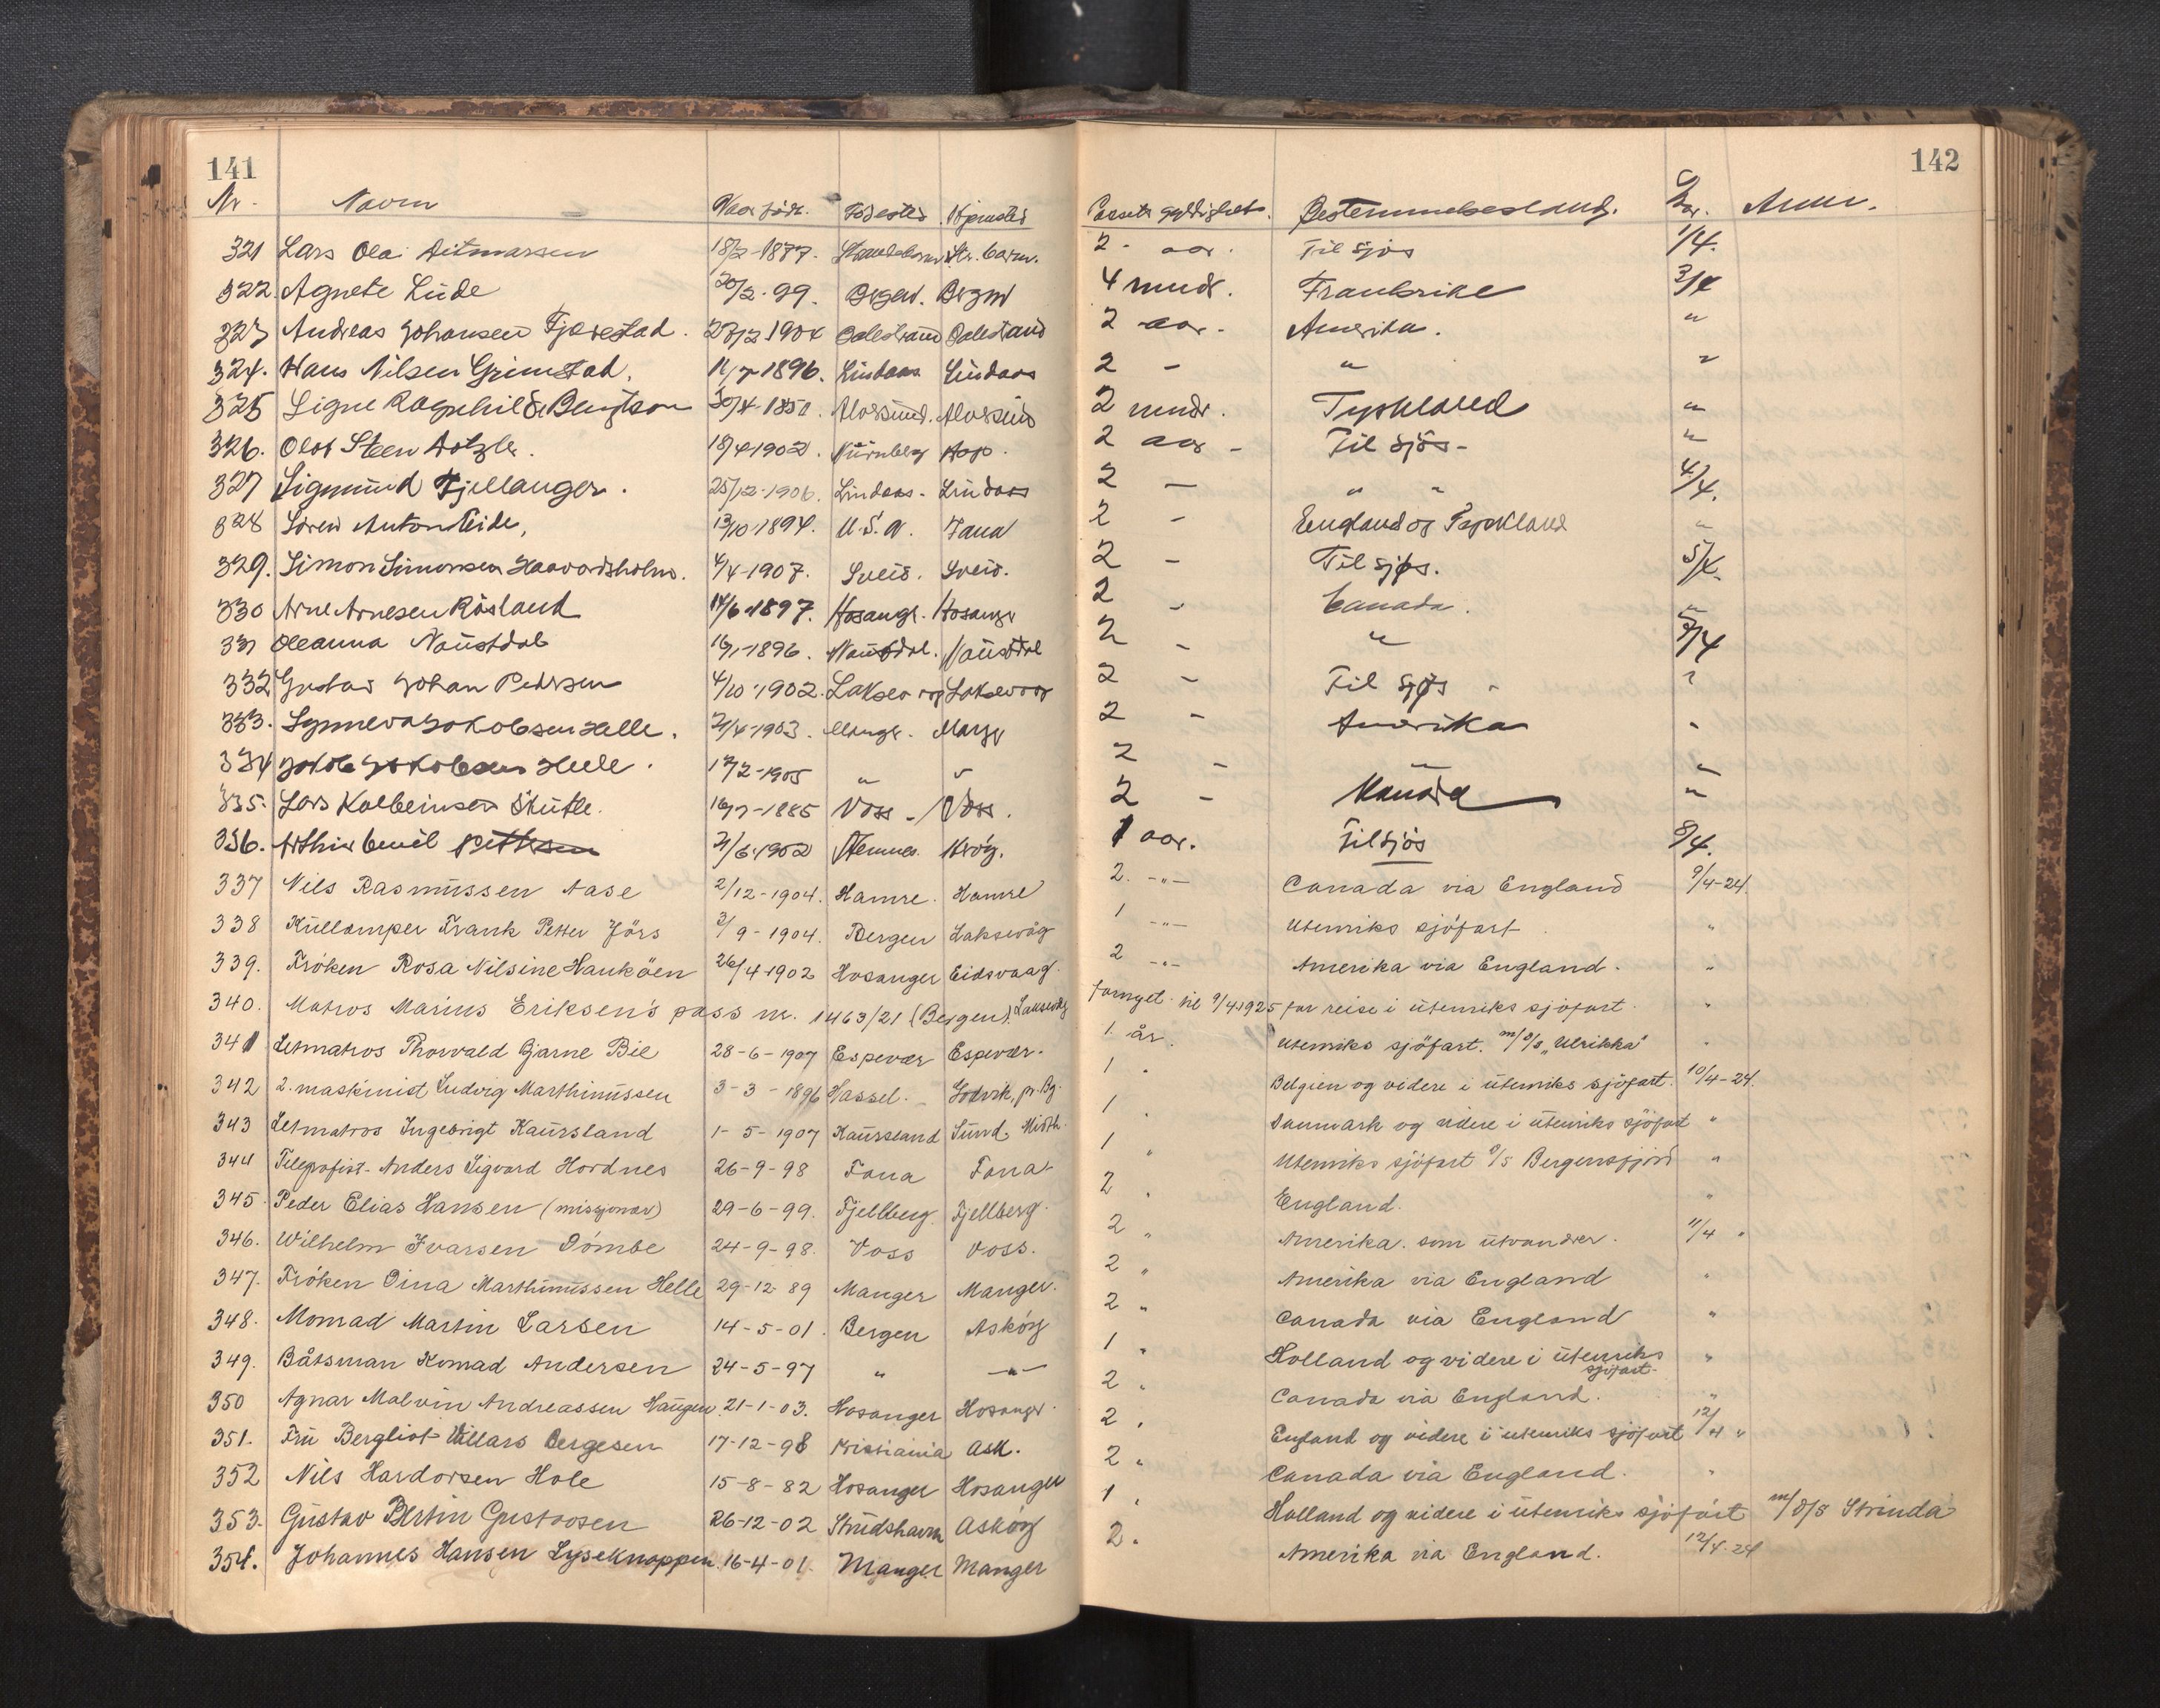 141
142
Nr. Navn Naar født. Fødested Hjemsted Passets gyldighet. Bestemmelsesland. Dat. Anm.
321 Lars Ola Ditmarssen 18/2-1877. 2 - aar. Til sjøs 1/4.
322 Agnete Lude /2-99. Bergen. Bergen 4 mndr. Frankrike 3/4
323 Andreas Johansen Fjærestad. 1904 2 aar. Amerika. "
324. Hans Nilsen Grimstad. 11/7-1896. Lindaas Lindaas 2 - " "
325 Signe Ragnhilde Bengtson 30/4-1851. Aalesund. Aalesund 2 mndr. Tyskland "
326. Olof Steen Dotzler. 18/4-1902. Nürnberg Hop. 2 aar - Til sjøs - "
327 Sigmund Fjellanger. 25/12-1906. Lindaas - Lindaas 2 - " " 4/4.
328 Søren Anton Eide, 13/10-1894. U.S.A. Fana 2 - England og Tyskland "
329. Simon Simonsen Haavardsholm. 4/4-1907. Sveio. Sveio. 2 - Til sjøs. 5/4.
330 Arne Arnesen Røsland 14/6-1897. Hosangr. Hosangr 2 - Canada. "
331 Oleanna Naustdal 16/1-1896. Naustdal. Naustdal 2 - " 7/4
332 Gustav Johan Petersen 4/10-1902. Laksevaag Laksevaag 2 - Til sjøs - "
333. Synneva Jakobsen Helle. 2/4-1903. Mangr. Mangr 2 - Amerika "
334 Jakob Jakobsen Helle. 17/2-1905 " " 2 - " "
335. Lars Kolbeinsen Skutle. 16/7-1885 Voss - Voss. 2 - Kanada "
336. Arthur Emil Pettersen 2/6-1902 1 aar. Til sjøs 8/4.
337 Nils Rasmussen Aase 2/12-1904. Hamre. Hamre 2. -"- Canada via England 9/4-24.
338 Kullemper Frank Petter Jörs 3/9-1904. Bergen Laksevåg 1 -"- Utenriks sjöfart. "
339. Fröken Rosa Nilsine Hauköen 26/4-1902 Hosanger Eidsvaag. 2 -"- Amerika via England. "
340. Matros Marius Eriksen's pass nr. 1463/21 (Bergen). Laksevåg fornyet til 9/4-1925 for reise i utenriks sjöfart. "
341 Letmatros Thorvald Bjarne Bie 28-6-1907 Espevær Espevær. 1 år. Utenriks sjöfart. m/s/s "Ulrikka" "
342 2. maskinist Ludvig Marthinussen 3-3-1896 Hassel. Godvik, pr. Bg. 1 " Belgien og videre i utenriks sjöfart. 10/4-24.
343 Letmatros Ingebrigt Kaursland 1-5-1907 Kaursland Sund, Midth. 1 " Danmark og videre i utenriks sjöfart "
344 Telegrafist Anders Sigvard Hordnes 26-9-98 Fana Fana 1 " Utenriks sjöfart S/S Bergensfjord "
345. Peder Elias Hansen (misjonær) 29-6-99. Fjellberg. Fjellberg. 2 " England. "
346. Wilhelm Ivarsen Dömbe 24-9-98. Voss Voss. 2 " Amerika. som utvandrer. 11/4 "
347. Fröken Oina Marthinussen Helle 29-12-89 Manger Manger. 2 " Amerika via England "
348. Monrad Martin Larsen 14-5-01. Bergen Asköy 2 " Canada via England "
349. Båtsman Konrad Andersen 24-5-97 " -"- 1 " Holland og videre i utenriks sjöfart. "
350 Agnar Malvin Andreassen Haugen 21-1-03. Hosanger Hosanger. 2 " Canada via England. "
351. Fru Bergliot Villars Bergesen 17-12-98 Kristiania Ask. 2 " England og videre i utenriks sjöfart 12/4 "
352 Nils Hardorsen Hole 15-8-82 Hosanger Hosanger 2 " Canada via England. "
353. Gustav Bertin Gustavsen 26-12-02 Strudshavn Asköy 1 " Holland og videre i utenriks sjöfart m/s/s Strinda
354. Johannes Hansen Lyseknappen. 16-4-01. Manger Manger 2. Amerika via England. 12/4-24